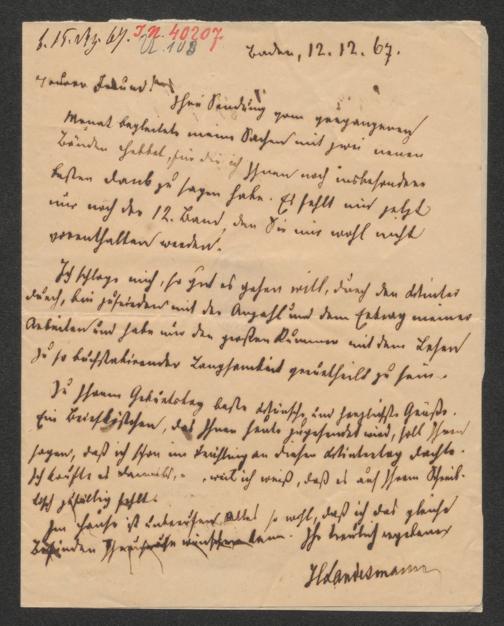 b. 15. Dz. 67. I.N. 40207
Baden, 12.12.67.
Teurer Freund!
Ihre Sendung vom vergangenen
Monat begleitete meine Sachen mit zwei neuen
Bänden Hebbel, für die ich Ihnen noch insbesondere
besten Dank zu sagen habe. Es fehlt mir jetzt
nur noch der 12. Band, den Sie mir wohl nicht
vorenthalten werden.
Ich schlage mich, so gut es gehen will, durch den Winter
durch, bin zufrieden mit der Anzahl und dem Ertrag meiner
Arbeiten und habe nur den großen Kummer mit dem Lesen
zu so buchstabierender Langsamkeit verurtheilt zu sein.
Zu Ihrem Geburtstag beste Wünsche und herzlichste Grüße.
Ein Briefkästchen, das Ihnen heute zugesendet wird, soll Ihnen
sagen, daß ich schon im Frühling an diesen Wintertag dachte.
Ich kaufte es damals, weil ich weiß, daß es auf Ihrem Schreib-
tisch zufällig fehlt.
Im Hause ist Alles so wohl, daß ich das gleiche
Befinden wünschen kann. Ihr treulich ergebener
HLandesmann